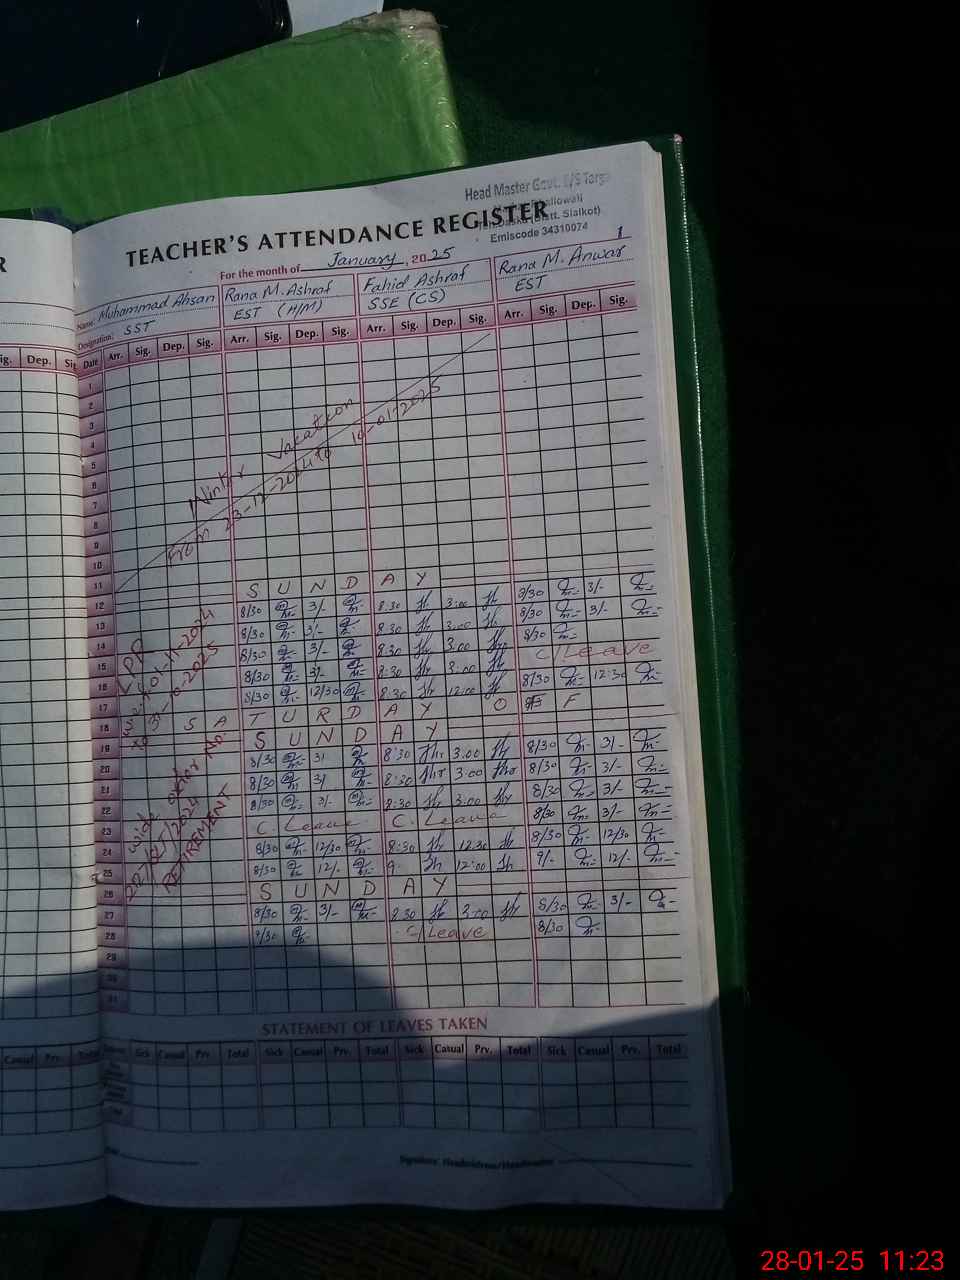 Head Master Govt. E/S Targa
(Distt. Sialkot)
Emiscode 34310074
TEACHER'S ATTENDANCE REGISTER
1
For the month of January, 2025
Name: Muhammad Ahsan Rana M. Ashraf Fahid Ashraf Rana M. Anwar
Designation: SST EST (H/M) SSE (CS) EST
Date Arr. Sig. Dep. Sig. Arr. Sig. Dep. Sig. Arr. Sig. Dep. Sig. Arr. Sig. Dep. Sig.
R
ig. Dep. Sig
1
2
3
4
5
6
7
8
9
10
11
Winter Vacation
From 23-12-2024 to
12 SUNDAY 8/30 3/-
13 8/30 3/- 8:30 3:00 8/30 3/-
14 8/30 3/- 8:30 3:00 8/30
15 8/30 3/- 8:30 3:00 C/Leave
16 8/30 3/- 8:30 3:00 8/30 12:30
17 8/30 12/30 8:30 12:00 OFF
18 SATURDAY
19 SUNDAY 8/30 3/-
20 8/30 3/ 8:30 3:00 8/30 3/-
21 8/30 3/ 8:30 3:00 8/30 3/-
22 8/30 3/- 8:30 3:00 8/30 3/-
23 C. Leave C. Leave 8/30 12/30
24 8/30 12/30 8:30 12:30 9/- 12/-
25 8/30 12/- 9- 12:00
26 SUNDAY
27 8/30 3/- 8:30 3:00 8/30 3/-
28 9/30 C/Leave 8/30
29
30
31
LPR
w.e.f 01-11-2024
to 31-10-2025
wide order No.
RETIREMENT
STATEMENT OF LEAVES TAKEN
Casual Prv. Total
Sick Casual Prv. Total Sick Casual Prv. Total Sick Casual Prv. Total Sick Casual Prv. Total
Signature Headmistress/Headmaster
28-01-25 11:23